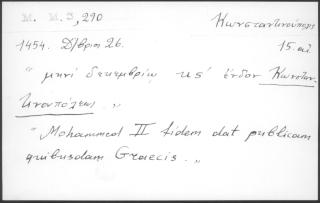 M. M. 3, 290 Κωνσταντινούπολη
1454. Δ/βριο 26. 15 αι.
" μηνί δεκεμβρίω κς' ένδον Κωνσταν.
τινουπόλεως. „
" Mohammed II fidem dat publicam
quibusdam Graecis. „